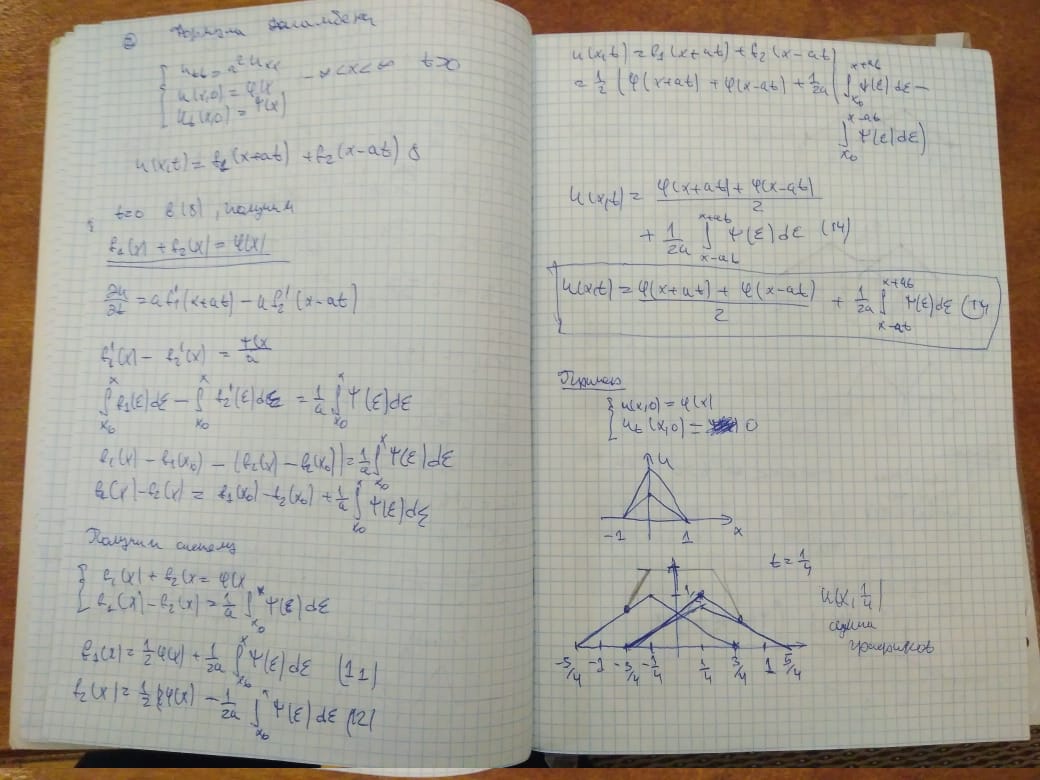 ② Формула Даламбера
{ u_tt = a² u_xx   -∞<x<∞   t>0
u(x,0) = φ(x
u_t(x,0) = Ψ(x)
u(x,t) = f₁(x+at) + f₂(x-at) 8
t=0 в (8), получим
f₁(x) + f₂(x) = φ(x)
∂u/∂t = a f₁'(x+at) - a f₂'(x-at)
f₁'(x) - f₂'(x) = Ψ(x/a
∫_{x₀}^{x} f₁(ξ)dξ - ∫_{x₀}^{x} f₂'(ξ)dξ = 1/a ∫_{x₀}^{x} Ψ(ξ)dξ
f₁(x) - f₁(x₀) - (f₂(x) - f₂(x₀)) = 1/a ∫_{x₀}^{x} Ψ(ξ)dξ
f₁(x) - f₂(x) = f₁(x₀) - f₂(x₀) + 1/a ∫_{x₀}^{x} Ψ(ξ)dξ
Получим систему
{ f₁(x) + f₂(x = φ(x
f₁(x) - f₂(x) = 1/a ∫_{x₀}^{x} Ψ(ξ)dξ
f₁(x) = 1/2 φ(x) + 1/2a ∫_{x₀}^{x} Ψ(ξ)dξ (11)
f₂(x) = 1/2 φ(x) - 1/2a ∫_{x₀}^{x} Ψ(ξ)dξ (12)
u(x,t) = f₁(x+at) + f₂(x-at)
= 1/2 (φ(x+at) + φ(x-at) + 1/2a ( ∫_{x₀}^{x+at} Ψ(ξ)dξ -
∫_{x₀}^{x-at} Ψ(ξ)dξ)
u(x,t) = φ(x+at) + φ(x-at) / 2
+ 1/2a ∫_{x-at}^{x+at} Ψ(ξ)dξ (14)
u(x,t) = φ(x+at) + φ(x-at) / 2 + 1/2a ∫_{x-at}^{x+at} Ψ(ξ)dξ (14)
Пример
{ u(x,0) = φ(x)
u_t(x,0) = 0
u
-1 1 x
t = 1/4
u(x, 1/4)
графиков
-5/4 -1 -3/4 -1/4 1/4 3/4 1 5/4